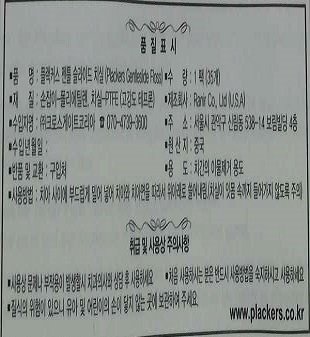 품 질 표 시
•품 명 : 플랙커스 젠틀 슬라이드 치실 (Plackers Gentleslide Floss) •수 량 : 1 팩 (35개)
•재 질 : 손잡이-폴리에틸렌, 치실-PTFE (고강도 테프론) •제조회사 : Ranir Co., Ltd (U.S.A)
•수입자명 : ㈜크로스게이트코리아 ☎ 070-4739-3600 •주 소 : 서울시 관악구 신림동 539-14 보림빌딩 4층
•수입년월일 : •원 산 지 : 중국
•반품 및 교환 : 구입처 •용 도 : 치간의 이물제거 용도
•사용방법 : 치아 사이에 부드럽게 밀어 넣어 치아와 치아면을 따라서 위아래로 쓸어내림(치실이 잇몸 속까지 들어가지 않도록 주의)
취급 및 사용상 주의사항
•사용상 문제나 부작용이 발생할시 치과의사와 상담 후 사용하세요 •처음 사용하시는 분은 반드시 사용방법을 숙지하시고 사용하세요
•질식의 위험이 있으니 유아 및 어린이의 손이 닿지 않는 곳에 보관하여 주세요.
www.plackers.co.kr